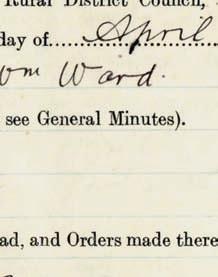 Rural District Council,
day of.....April
Wm Ward.
see General Minutes).
ad, and Orders made there